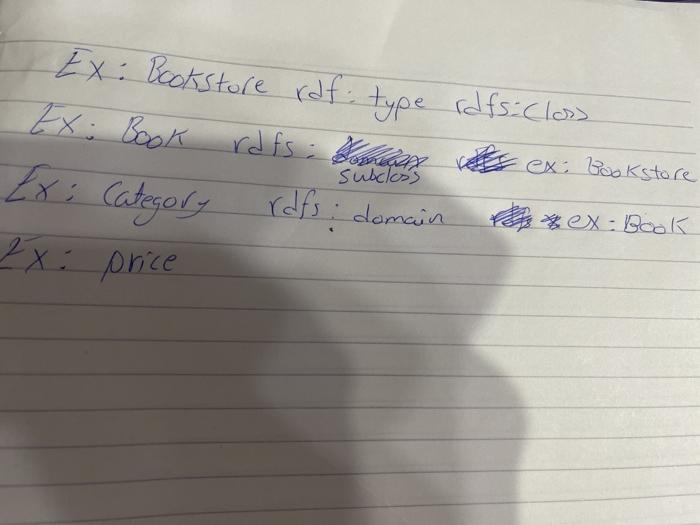 Ex: Bookstore rdf: type rdfs: Class
Ex: Book rdfs: subclass ex: Bookstore
Ex: Category rdfs: domain ex: Book
Ex: price